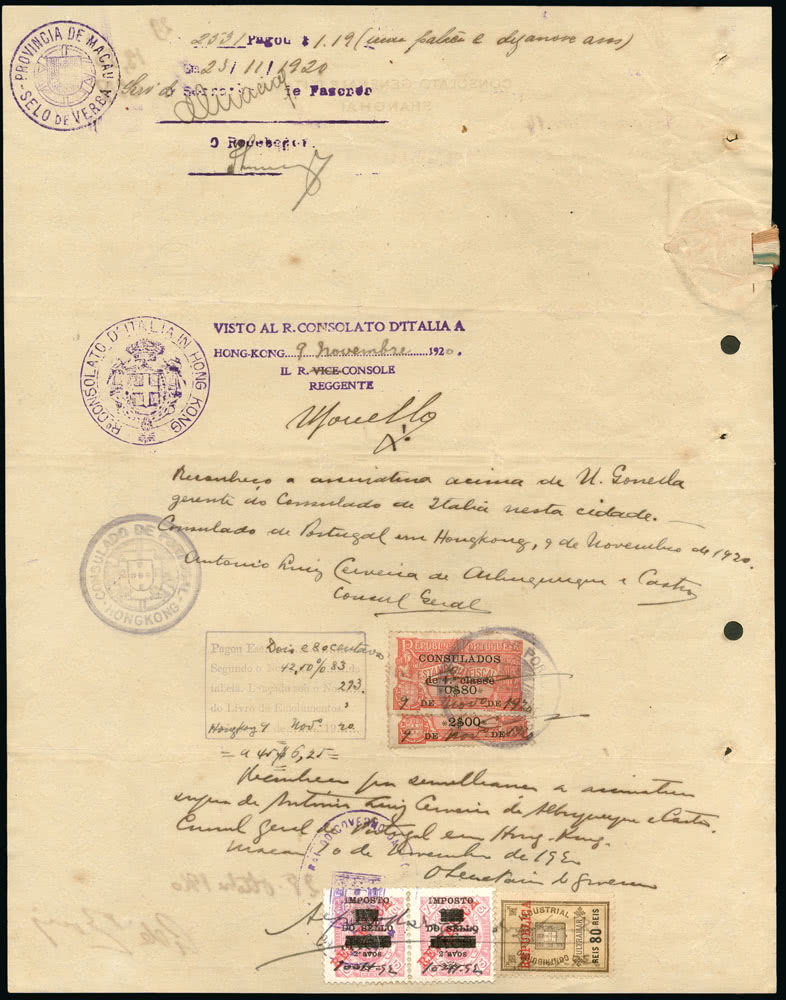 PROVINCIA DE MACAU
SELO DE VERBA
2531 Pagou $ 1.19 (uma pataca e dezanove avos)
Em 23/11/1920
de Fazenda
O Recebedor
Rº CONSOLATO D'ITALIA IN HONG KONG
VISTO AL R. CONSOLATO D'ITALIA A
HONG-KONG 9 Novembre 1920.
IL R. VICE-CONSOLE
REGGENTE
Reconheço a assinatura acima de U. Gonella
gerente do Consulado de Italia nesta cidade.—
Consulado de Portugal em Hongkong, 9 de Novembro de 1920.
Antonio Luiz Cerveira de Albuquerque e Castro
Consul Geral
CONSULADO DE PORTUGAL
HONGKONG
Pagou Esc. Dois e 80 centavos
Segundo o
42,50% 83
tabela.
273
do Livro de Emolumentos
Hongkong 9 Novº 20
= a 45 $ 6,25 =
REPUBLICA PORTUGUESA
CONSULADOS
de 1.ª classe
0$80
9 DE Novº DE 1920
2$00
9 DE Novº DE 1920
Reconheço por semelhança a assinatura
supra de António Luiz Cerveira de Albuquerque e Castro,
Consul Geral de Portugal em Hong-Kong.
Macau 10 de Novembro de 1920
O Secretario do Governo
IMPOSTO
DO SELLO
2 avos
REPUBLICA
IMPOSTO
DO SELLO
2 avos
REPUBLICA
INDUSTRIAL
ULTRAMAR
REPUBLICA
REIS 80 REIS